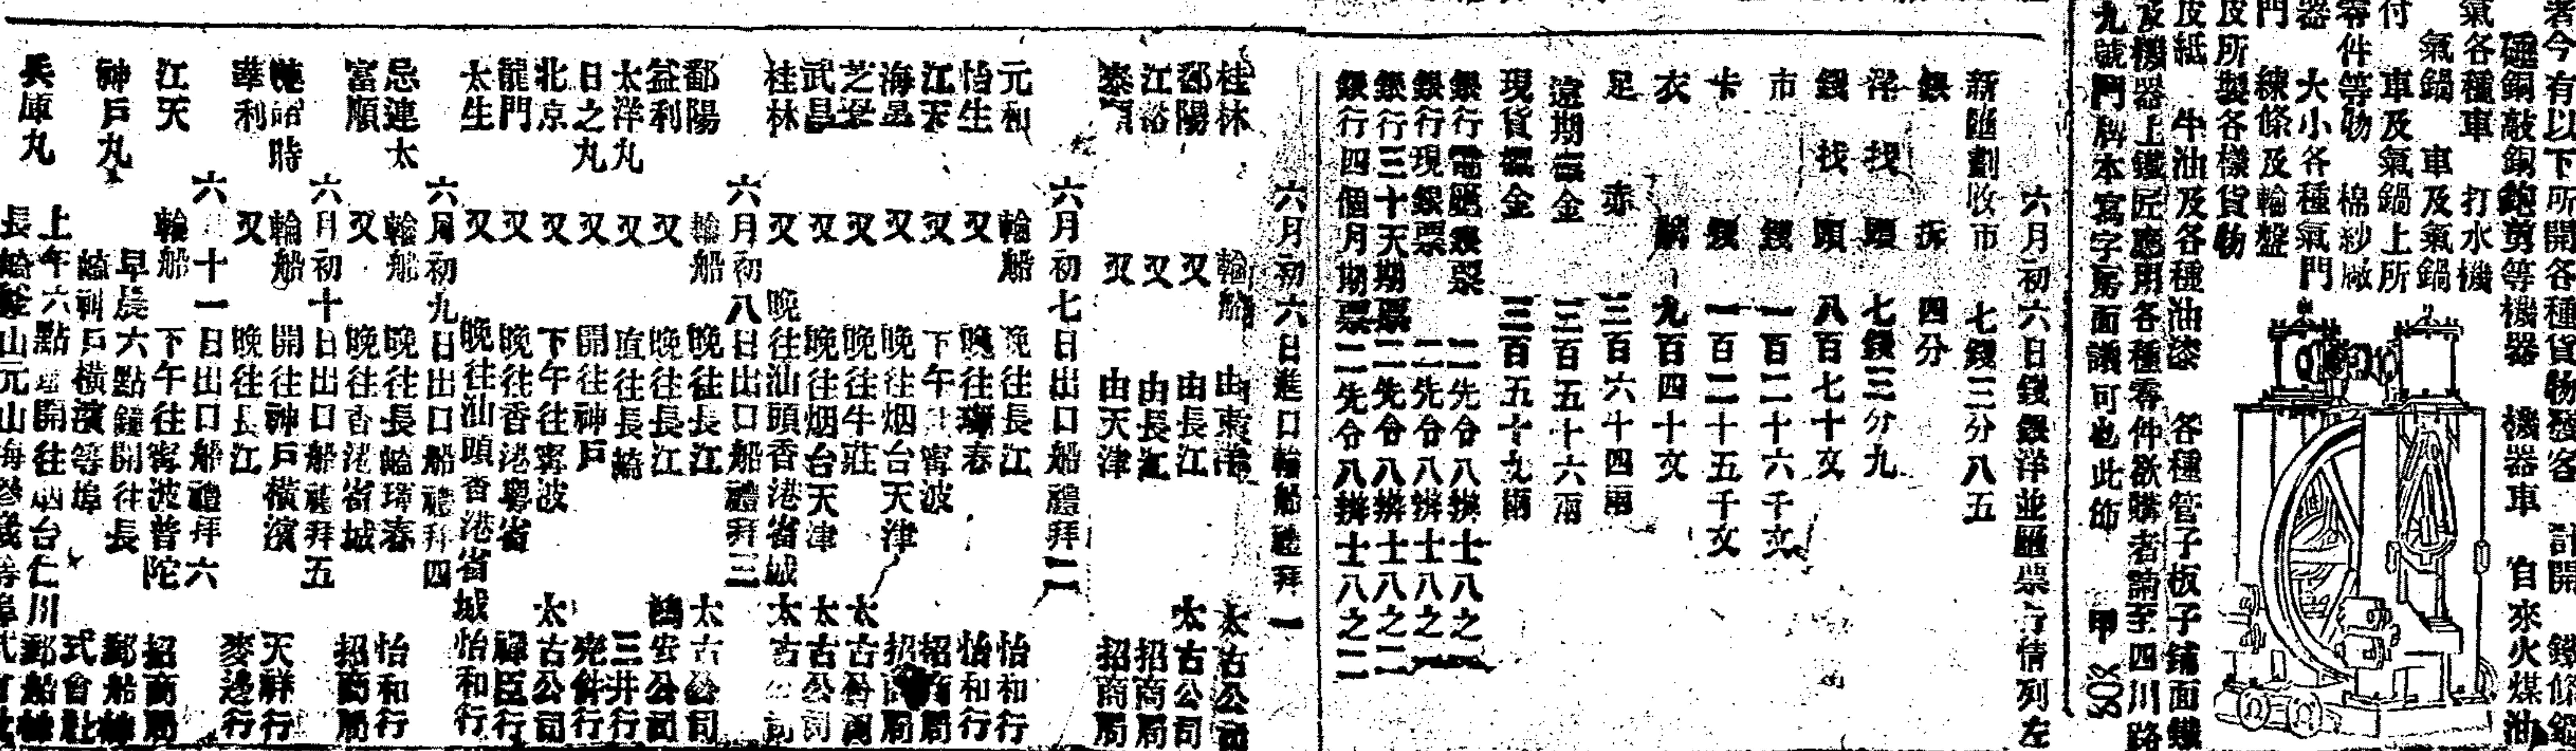 者今有以下所開各種貨物發客　計開　鐵條鋼
碰銅敲銅鉋剪等機器　機器車　自來火煤油
氣各種車　打水機
氣鍋　車及氣鍋
付　車及氣鍋上所
零件等物　棉紗廠
器　大小各種氣門
門　練條及輪盤
皮所製各樣貨物
皮紙　牛油及各種油漆　各種管子板子鋪面鐵
及機器上鐵匠應用各種零件欲購者請至四川路
九號門牌本寫字房面議可也此佈　甲
六月初六日錢銀洋並匯票行情列左
新匯劃收市　七錢三分八五
銀拆　四分
洋找頭　七錢三分九
錢找頭　八百七十文
市錢　一百二十六千文
卡錢　一百二十五千文
衣牌　九百四十文
足赤　三百六十四兩
遠期標金　三百五十六兩
現貨標金　三百五十九兩
銀行電匯票　二先令八辦士八之一
銀行現銀票　二先令八辦士八之一
銀行三十天期票　二先令八辦士八之二
銀行四個月期票　二先令八辦士八之二
六月初六日進口輪船禮拜一
桂林　輪船　由東洋　太古公司
鄱陽　又　由長江　太古公司
江裕　又　由長江　招商局
泰順　又　由天津　招商局
六月初七日出口船禮拜二
元和　輪船　晚往長江　怡和行
怡生　又　晚往琿春　怡和行
江天　又　下午往寧波　招商局
海晏　又　晚往烟台天津　招商局
芝罘　又　晚往牛莊　太古公司
武昌　又　晚往烟台天津　太古公司
桂林　又　晚往汕頭香港省城　太古公司
六月初八日出口船禮拜三
鄱陽　輪船　晚往長江　太古公司
益利　又　晚往長江　鴻安公司
太洋丸　又　直往長崎　三井行
日之丸　又　開往神戶
北京　又　下午往寧波　太古公司
龍門　又　晚往香港粵省　禪臣行
太生　又　晚往汕頭香港省城　怡和行
六月初九日出口船禮拜四
忌連太　輪船　晚往長崎琿春　怡和行
富順　又　晚往香港省城　招商局
六月初十日出口船禮拜五
輪船　開往神戶橫濱　天祥行
華利　又　晚往長江　麥邊行
六　十一日出口船禮拜六
江天　輪船　下午往寧波普陀　招商局
神戶丸　早晨六點鐘開往長　郵船
崎神戶橫濱等埠　式會社
兵庫丸　上午六點　開往烟台仁川　郵船
長崎釜山元山海參崴等埠